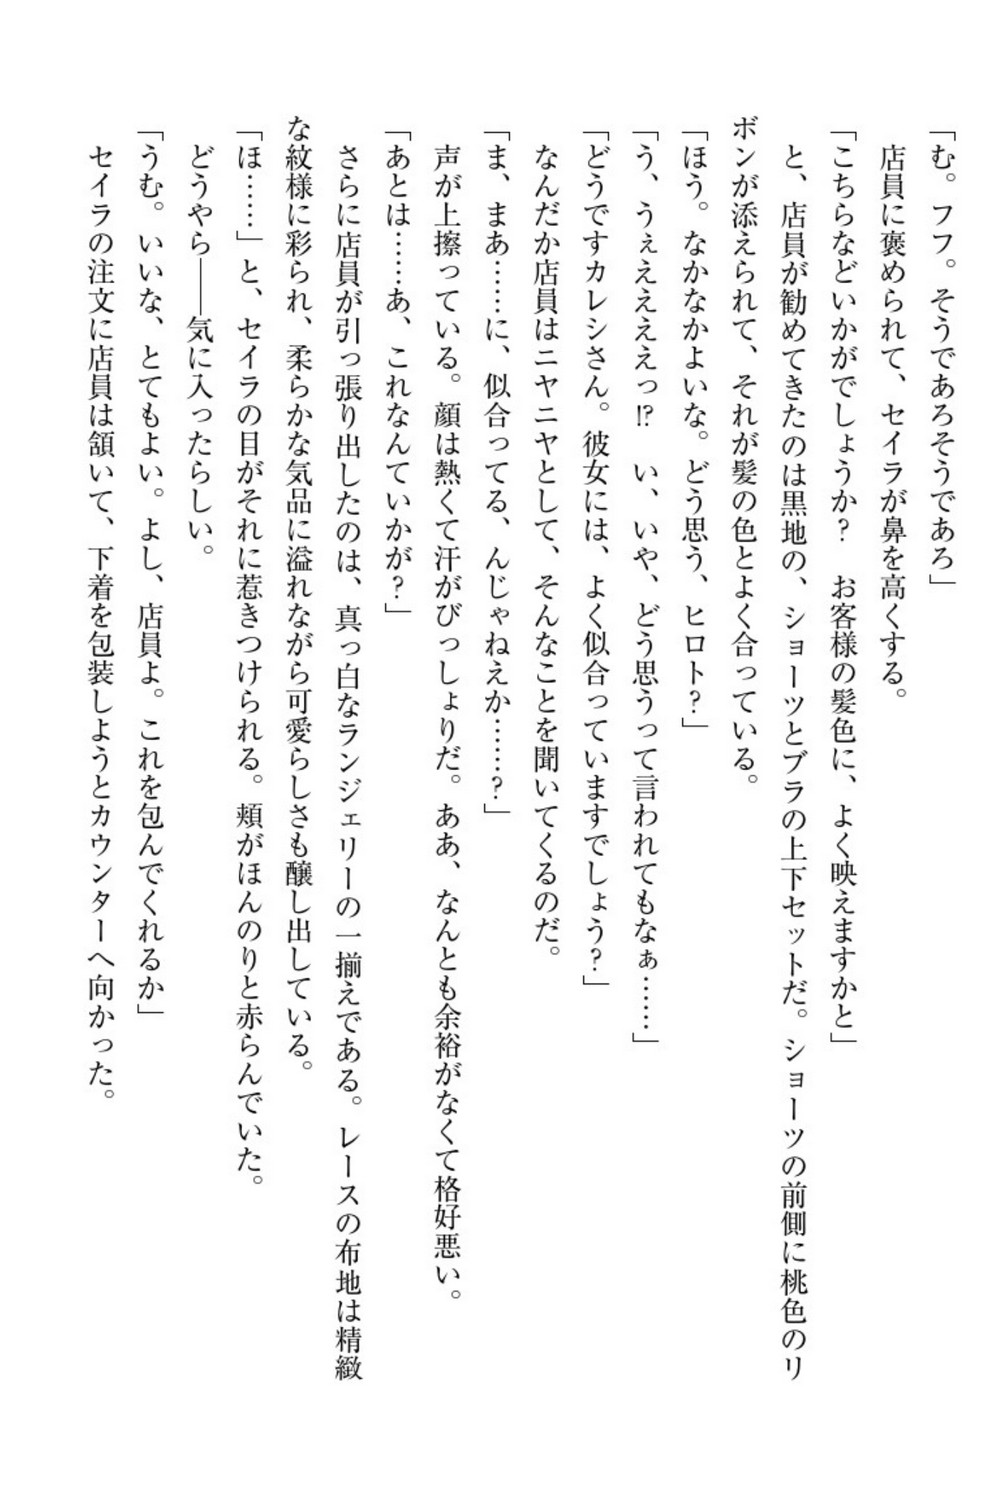 「む。フフ。そうであろそうであろ」
店員に褒められて、セイラが鼻を高くする。
「こちらなどいかがでしょうか？　お客様の髪色に、よく映えますかと」
と、店員が勧めてきたのは黒地の、ショーツとブラの上下セットだ。ショーツの前側に桃色のリ
ボンが添えられて、それが髪の色とよく合っている。
「ほう。なかなかよいな。どう思う、ヒロト？」
「う、うぇえええっ!?　い、いや、どう思うって言われてもなぁ……」
「どうですカレシさん。彼女には、よく似合っていますでしょう？」
なんだか店員はニヤニヤとして、そんなことを聞いてくるのだ。
「ま、まあ……に、似合ってる、んじゃねえか……？」
声が上擦っている。顔は熱くて汗がびっしょりだ。ああ、なんとも余裕がなくて格好悪い。
「あとは……あ、これなんていかが？」
さらに店員が引っ張り出したのは、真っ白なランジェリーの一揃えである。レースの布地は精緻
な紋様に彩られ、柔らかな気品に溢れながら可愛らしさも醸し出している。
「ほ……」と、セイラの目がそれに惹きつけられる。頬がほんのりと赤らんでいた。
どうやら――気に入ったらしい。
「うむ。いいな、とてもよい。よし、店員よ。これを包んでくれるか」
セイラの注文に店員は頷いて、下着を包装しようとカウンターへ向かった。